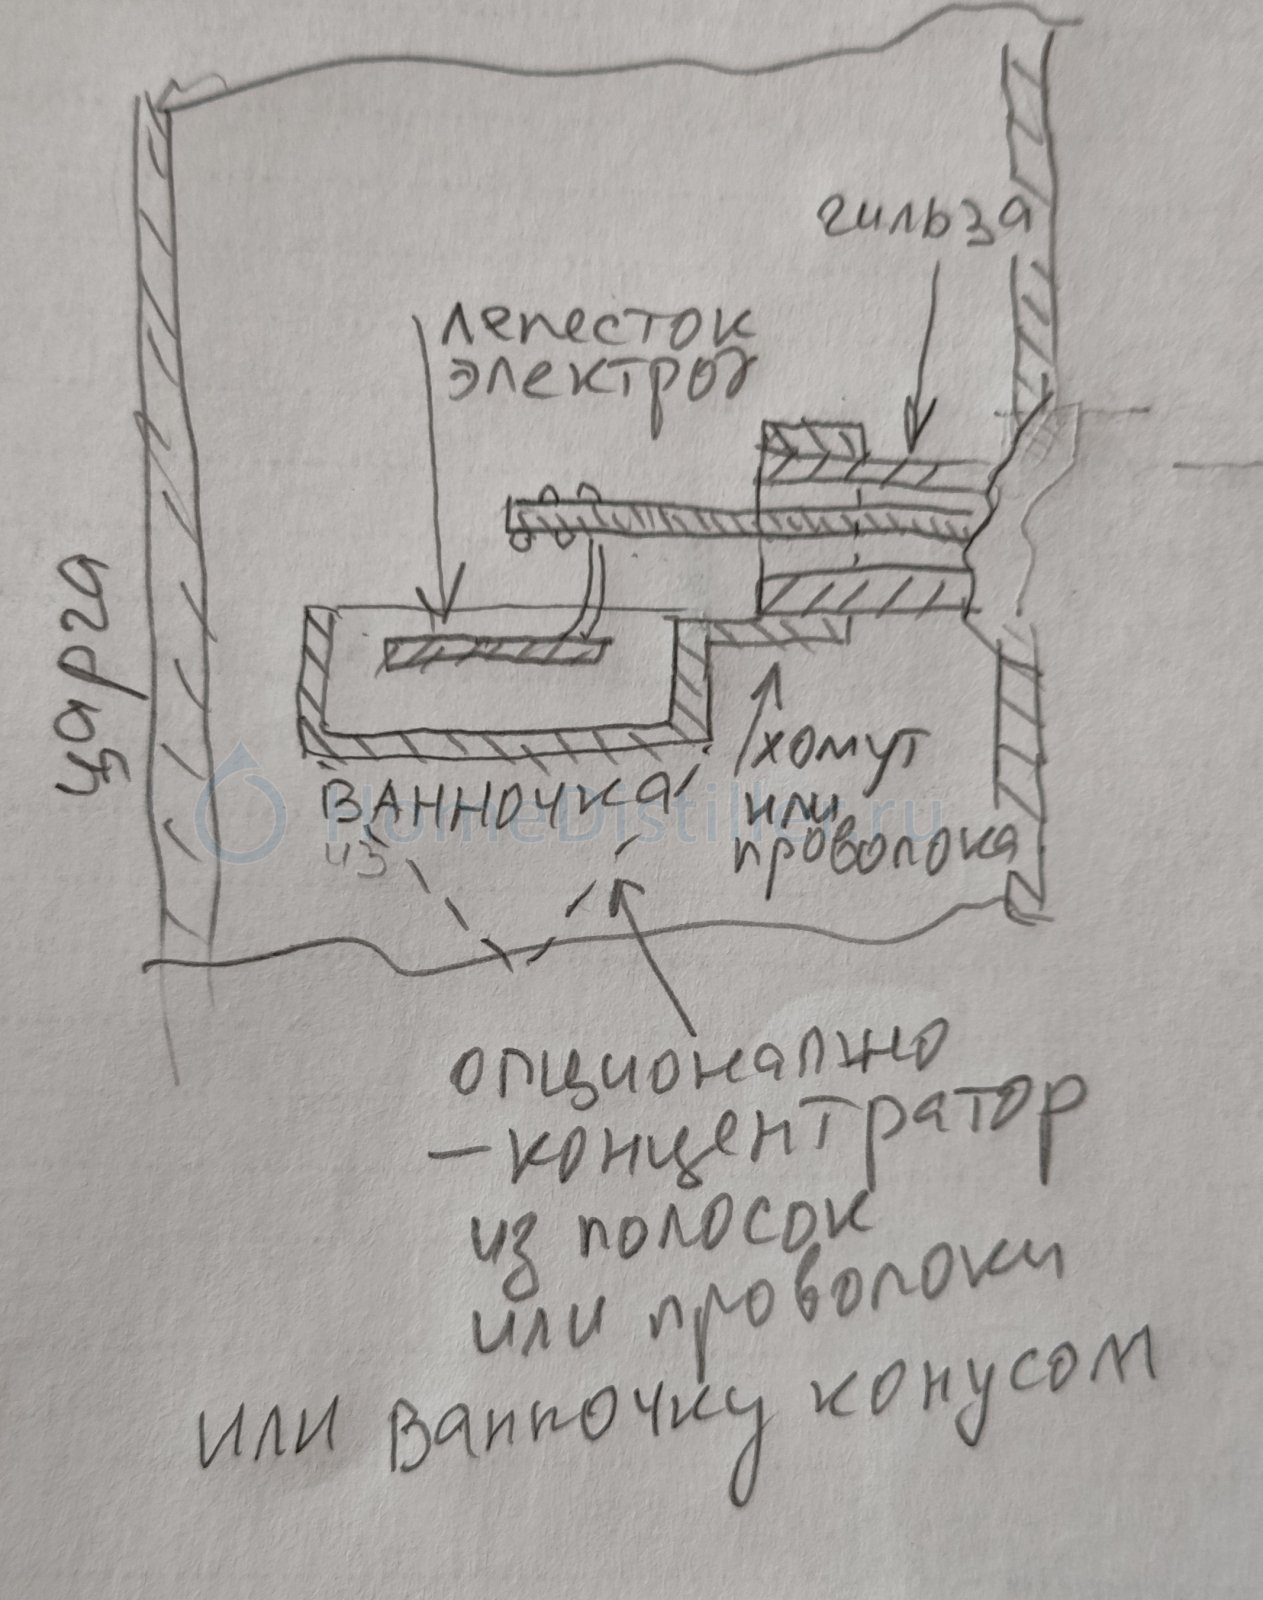 гильза
лепесток
электрод
царга
ванночка
из
хомут
или
проволока
HomeDistiller.ru
опционально
-концентратор
из полосок
или проволоки
или ванночку конусом